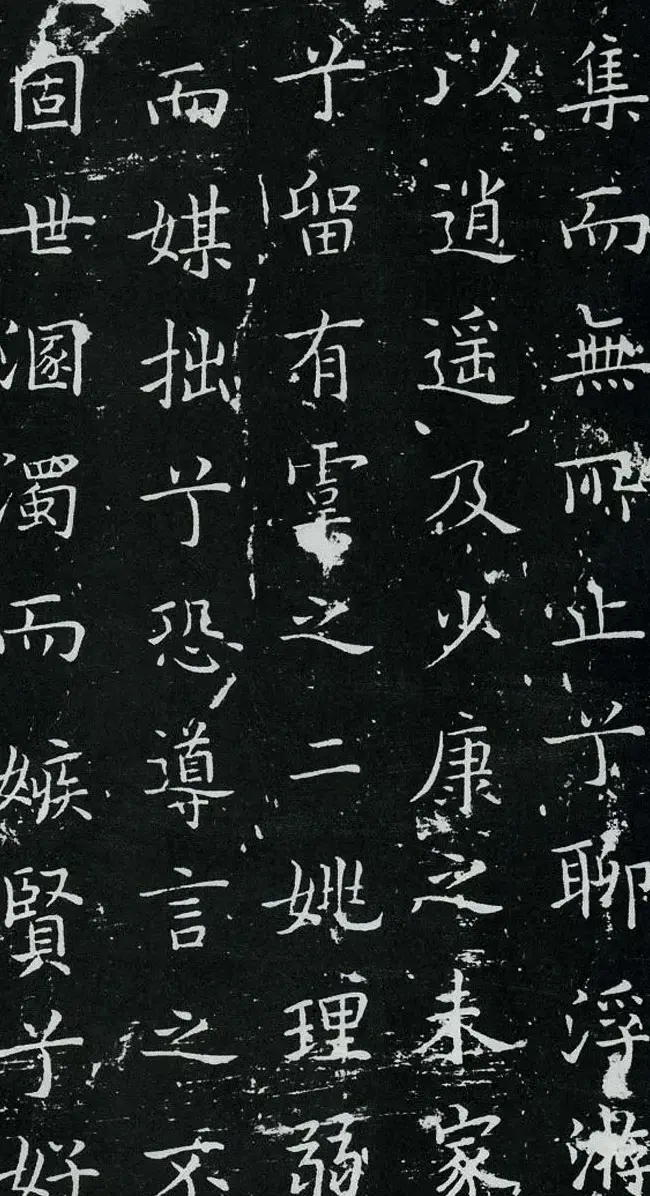 集而無所止兮聊浮游
以逍遥及少康之未家
兮留有虞之二姚理弱
而媒拙兮恐導言之不
固世溷濁而嫉賢兮好